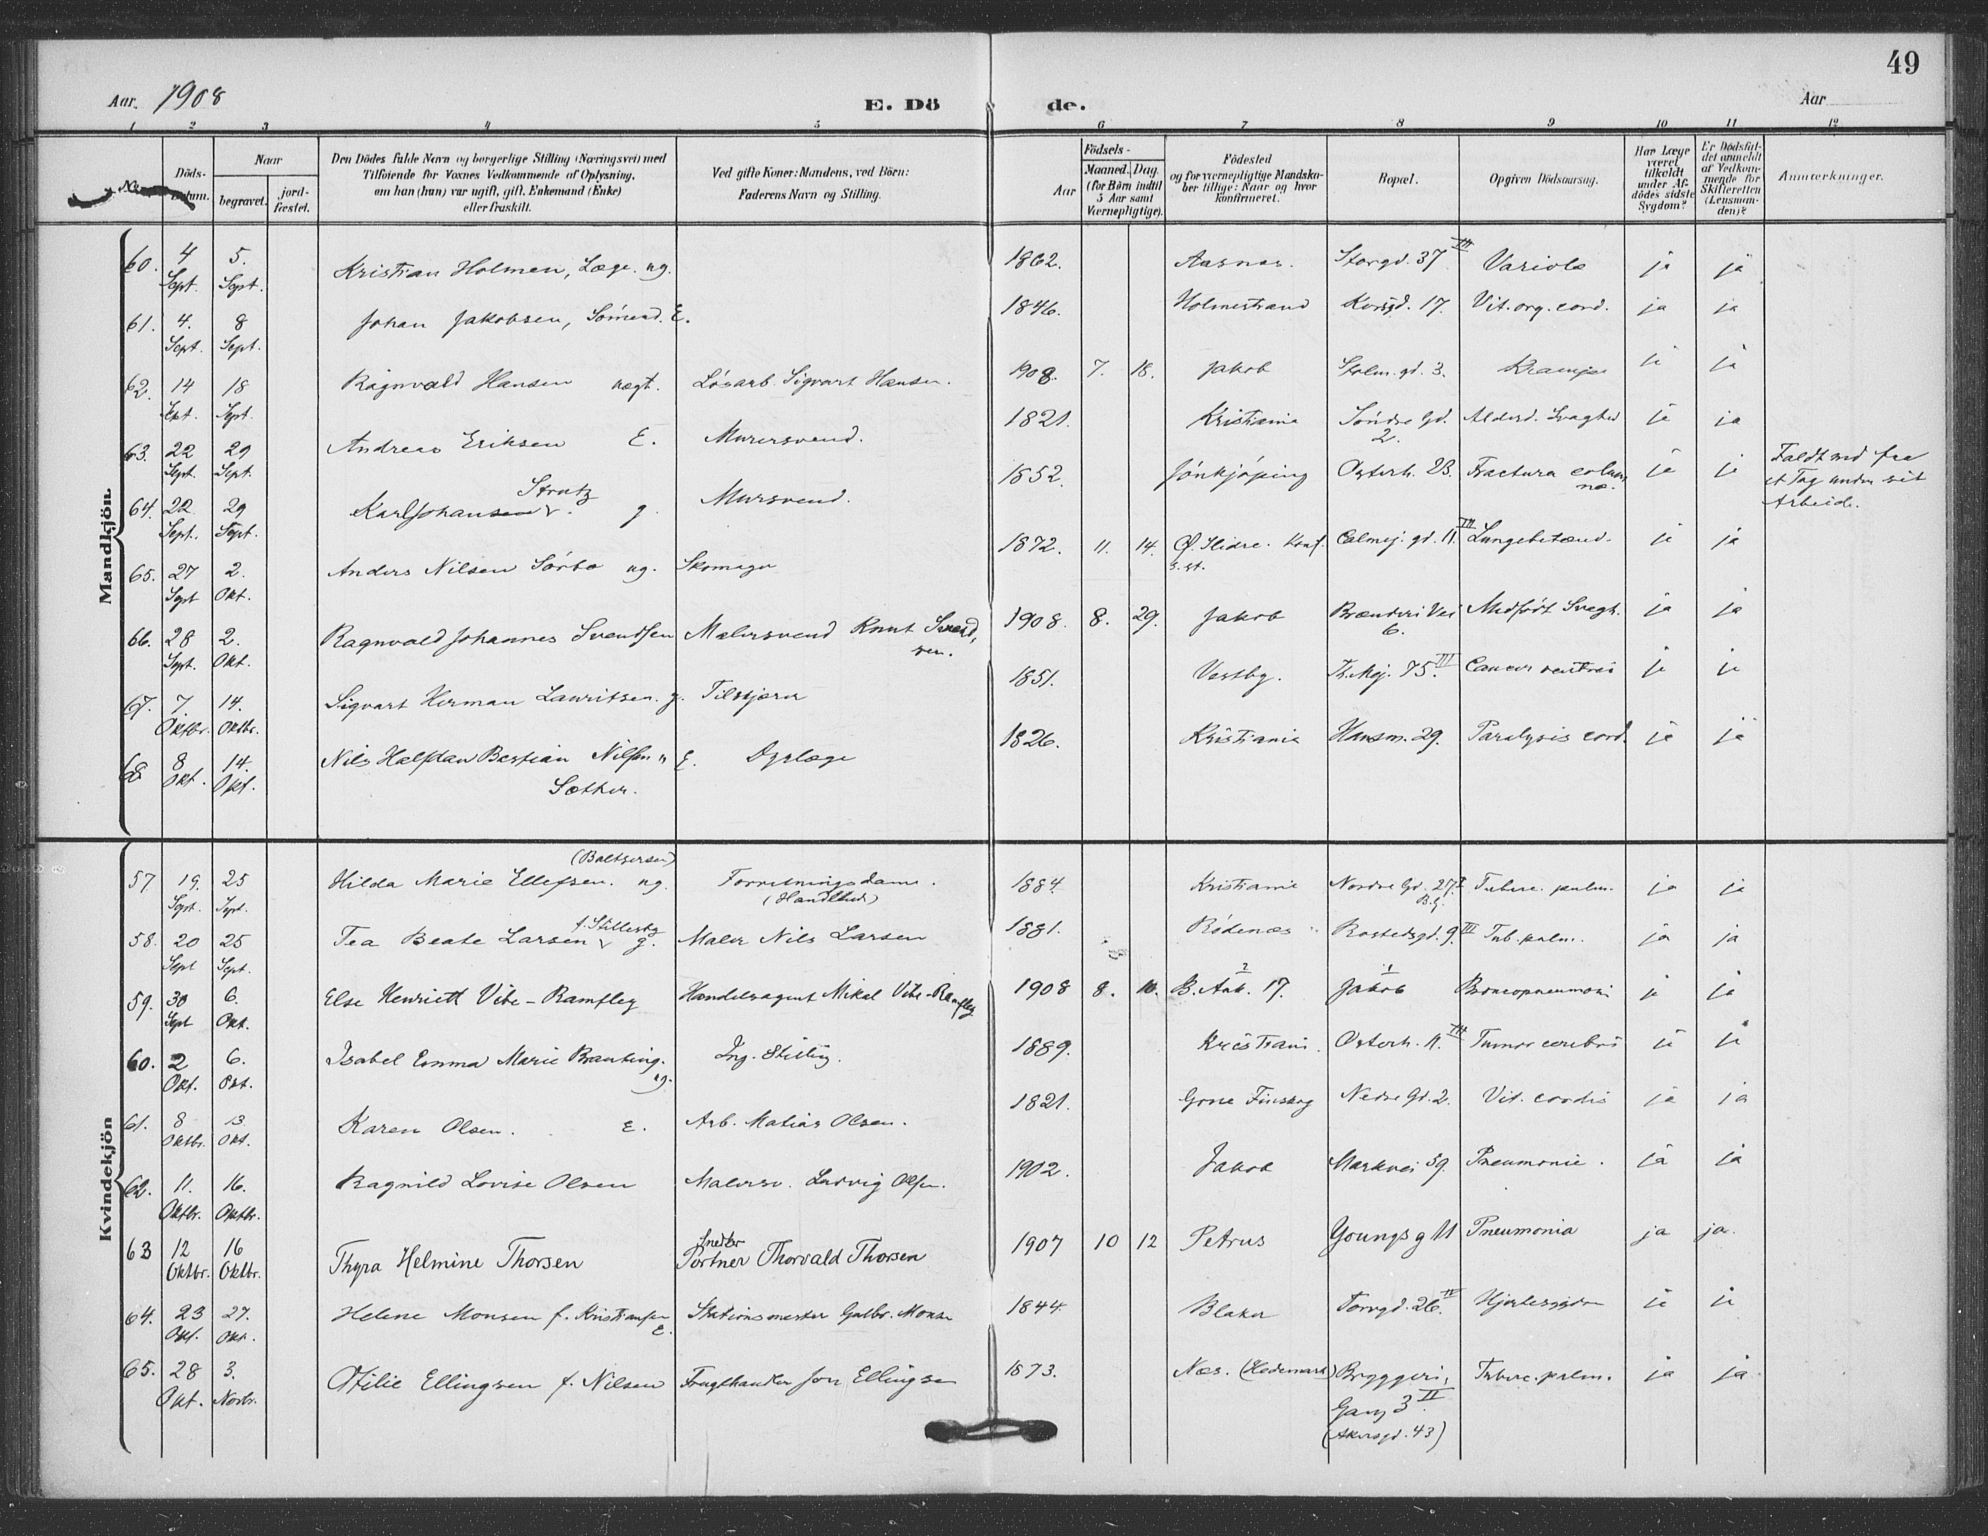 49
Aar. 1908
E. Dö de.
Aar
1 2 3 4 5 6 7 8 9 10 11 12
Döds-
Naar
begravet.
jord-
fæstet.
Den Dödes fulde Navn og borgerlige Stilling (Næringsvei) med
Tilföiende for Voxnes Vedkommende af Oplysning,
om han (hun) var ugift, gift, Enkemand (Enke)
eller fraskilt.
Ved gifte Koner: Mandens, ved Börn:
Faderens Navn og Stilling.
Födsels-
Aar
Maaned. Dag.
(for Börn indtil
5 Aar samt
Værnepligtige).
Födested
og for værnepligtige Mandska-
ber tillige: Naar og hvor
konfirmeret.
Bopæl.
Opgiven Dödsaarsag.
Har Læge
været
tilkaldt
under Af-
dödes sidste
Sygdom?
Er Dödsfal-
det anmeldt
af Vedkom-
mende for
Skifteretten
(Lensman-
den)?
Anmærkninger.
Mandkjön.
60. 4 Sept. 5. Sept. Kristian Holmen, Læge. ug. 1862. Aasnes. Storgd. 37 III Variola ja ja
61. 4. Sept. 8 Sept. Johan Jakobsen, Sömand. E. 1846. Holmestrand Korsgd. 17. Vit. org. cord. ja ja
62. 14 Sept. 18 Sept. Ragnvald Hansen uægt. Lösarb. Sigvart Hansen. 1908. 7. 18. Jakob Holm. gd. 3. Krampe ja ja
63. 22 Sept. 29 Sept. Andreas Eriksen E. Murersvend. 1821. Kristiania Söndre Gd. 2. Alderd. Svaghed ja ja
64. 22 Sept. 29 Sept. Karl Johansen Strutz g. Mursvend. 1852. Jönkjöping Osterh. 23. Fractura columnæ. ja ja Faldt ned fra
et Tag under sit
Arbeide.
65. 27 Sept 2. Okt. Anders Nilsen Sörbo ug. Skomager 1872. 11. 14. Ø. Slidre. Konf. s. st. Calmej. gd. 11. III Lungebetænd. ja ja
66. 28 Sept. 2. Okt. Ragnvald Johannes Svendsen Malersvend Knut Svendsen. 1908. 8. 29. Jakob Brænderi Vei 6. Medfödt Svagh. ja ja
67. 7. Oktbr. 14. Oktbr. Sigvart Herman Lauritsen. g. Tilskjærer 1851. Vestby. Th. Mej. 75. III Cancer ventric ja ja
68 8 Okt. 14. Okt. Nils Halfdan Bastian Nilsen Sæther. E. Dyrlæge 1826. Kristiania Hausm. 29. Paralysis cord. ja ja
Kvindekjön
57 19. Sept. 25 Sept. Hilda Marie Ellefsen. (Baltzersen) ug. Forretningsdame. 1884. Kristiania Nordre Gd. 27 I B.G. Tuberc. pulm. ja ja
58. 20 Sept 25 Sept. Tea Beate Larsen f. Stillesby g. Maler Nils Larsen 1881. Rödenæs Rostedsgd. 9. III Tub. pulm. ja ja
59. 30 Sept 6. Okt. Else Henriett Vibe-Ramfley Handelsagent Mikal Vibe-Ramfley 1908 8. 10. 2 B. Ank. 17. 1 Jakob Broncopneumoni ja ja
60. 2 Okt. 6. Okt. Isabel Emma Marie Branting. ug. Ing. Stilling. 1889. Kristiani. Osterh. 11. III Tumor cerebri ja ja
61. 8 Oktbr. 13. Okt. Karen Olsen. E. Arb. Matias Olsen. 1821. Grue Finskog Nedre Gd. 2. Vit. cordis ja ja
62. 11. Oktbr. 16. Oktbr. Ragnild Lovise Olsen Malersv. Ludvig Olsen. 1902. Jakob Markvei 59. Pneumonie. ja ja
63 12 Oktbr. 16 Oktbr. Thyra Helmine Thorsen Snedker Portner Thorvald Thorsen 1907 10 12 Petrus Youngs g 11 Pneumonia ja ja.
64. 23 Okt. 27. Okt. Helene Monsen f. Kristiansen E. Stationsmester Gulbr. Monsen 1844. Blaker Torvgd. 26. IV Hjertesygdom ja ja
65. 28 Okt. 3. Novbr. Otilie Ellingsen f. Nilsen Frugthandler Jon Ellingsen 1873. Næs. (Hedemark) Bryggeri Gang 3 II (Akersgd. 43) Tuberc. pulm. ja ja